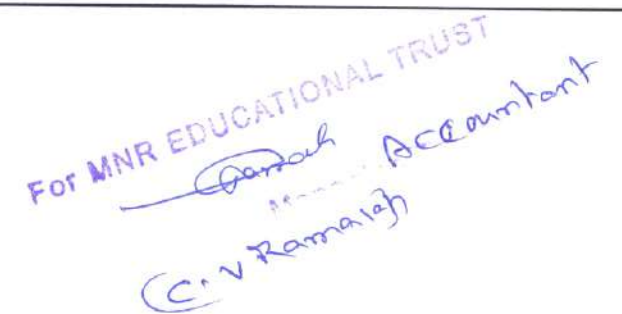 For MNR EDUCATIONAL TRUST
Accountant
(C.V Ramaiah